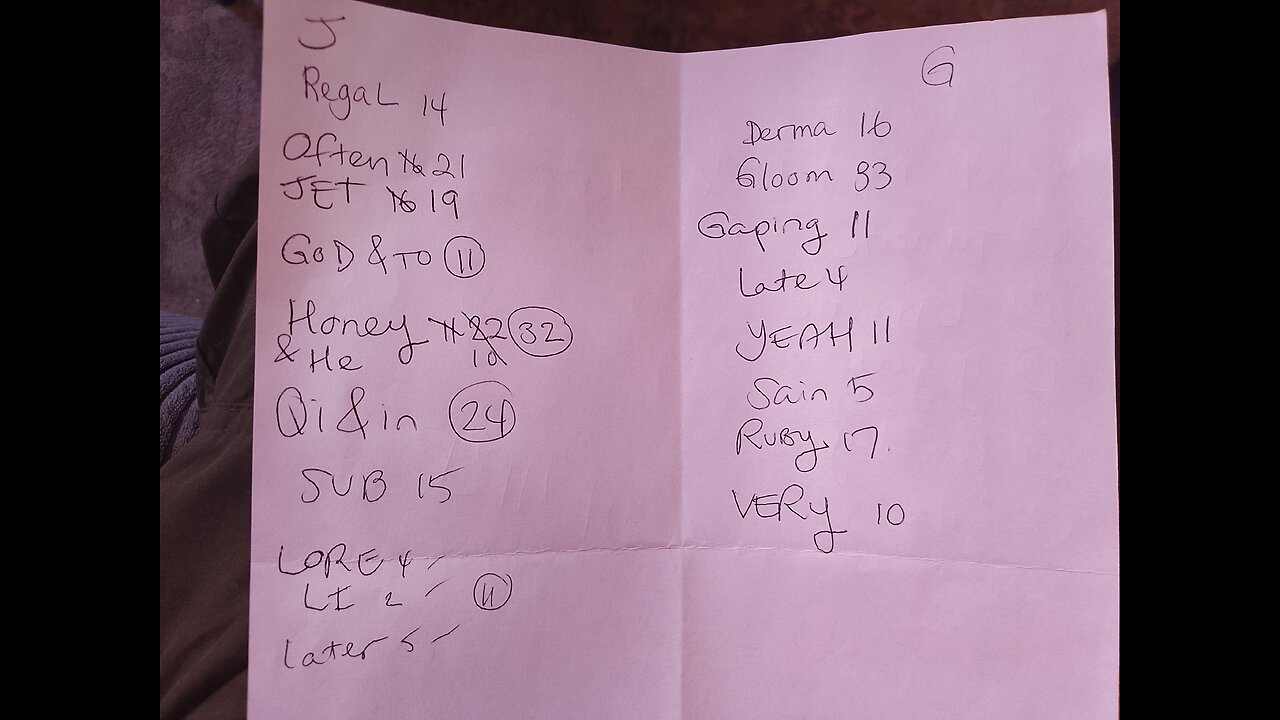 J
Regal 14
Often 16 21
JET 16 19
GOD & TO 11
Honey 11 22 32
& He 10
Qi & in 24
SUB 15
LORE 4
LI 2 11
Later 5
G
Derma 16
Gloom 33
Gaping 11
Late 4
YEAH 11
Sain 5
RUBY 17.
VERY 10